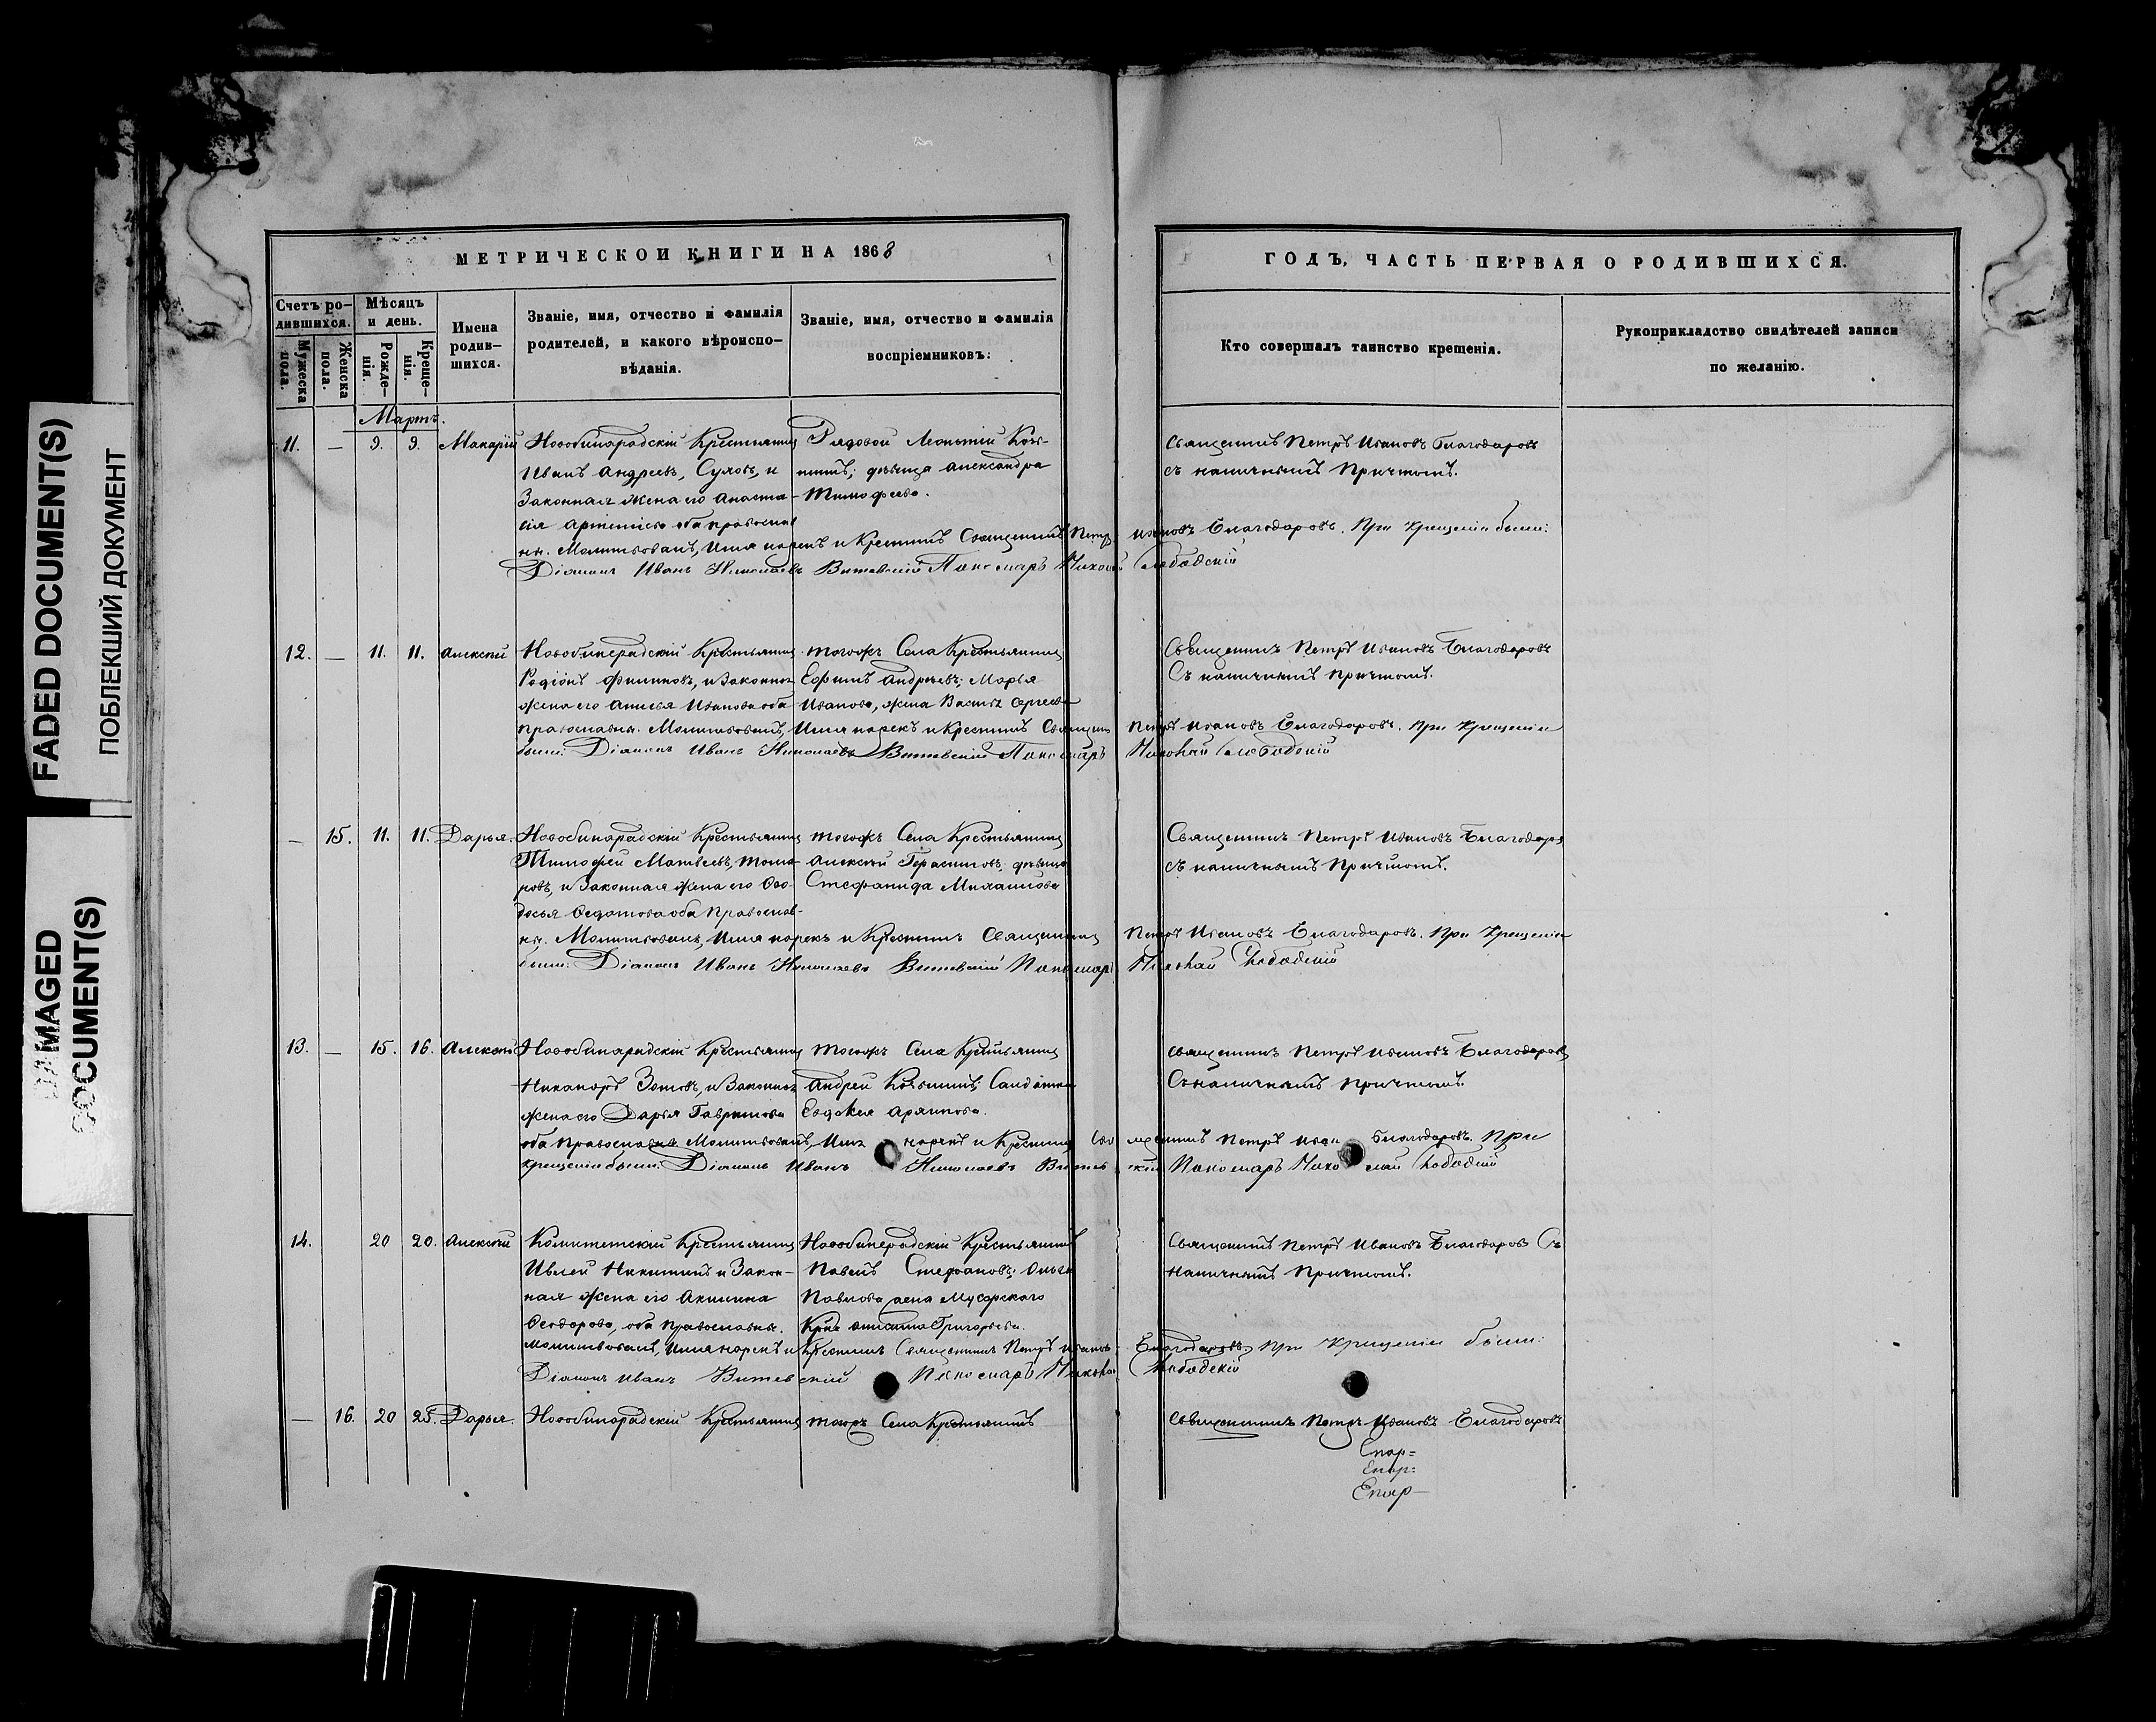 FADED DOCUMENT(S)
ПОБЛЕКШИЙ ДОКУМЕНТ
DAMAGED
DOCUMENT(S)
МЕТРИЧЕСКОЙ КНИГИ НА 1868
Счетъ родившихся.
Мужеска пола.
Женска пола.
Мѣсяцъ и день.
Рожде-
нія.
Креще-
нія.
Имена
родив-
шихся.
Званіе, имя, отчество и фамилія
родителей, и какого вѣроиспо-
вѣданія.
Званіе, имя, отчество и фамилія
воспріемниковъ:
ГОДЪ, ЧАСТЬ ПЕРВАЯ О РОДИВШИХСЯ.
Кто совершалъ таинство крещенія.
Рукоприкладство свидѣтелей записи
по желанію.
Мартъ.
11. — 9. 9. Макарій
Новобинарадскій Крестьянинъ
Иванъ Андреевъ, Суховъ, и
Законная жена его Анаста-
сія Артемьева оба православ
ны. Молитвовалъ, Имя нарекъ и Крестилъ Священникъ Петръ Ивановъ Благодаровъ. При Крещеніи были:
Діаконъ Иванъ Николаевъ Витевскій Пономарь Николай Слободскій
Рядовой Леонтій Козь-
минъ; дѣвица Александра
Тимофеева.
Священникъ Петръ Ивановъ Благодаровъ
съ наличнымъ Причтомъ.
12. — 11. 11. Алексѣй
Новобинарадскій Крестьянинъ
Родіонъ Филиповъ, и Законная
жена его Анисья Иванова оба
православны. Молитвовалъ, Имя нарекъ и Крестилъ Священ Петръ Ивановъ Благодаровъ. При Крещеніи
были: Діаконъ Иванъ Николаевъ Витевскій Пономарь Николай Слободскій
тогожъ Села Крестьянинъ
Ефимъ Андреевъ; Марья
Иванова, жена Сергеева
Священникъ Петръ Ивановъ Благодаровъ
Съ наличнымъ Причтомъ.
— 15. 11. 11. Дарья.
Новобинарадскій Крестьянинъ
Тимофей Матвеевъ,
и Законная жена его Ѳео-
досья Ѳедотова оба Православ-
ны. Молитвовалъ, Имя нарекъ и Крестилъ Священникъ Петръ Ивановъ Благодаровъ. При Крещеніи
были: Діаконъ Иванъ Николаевъ Витевскій Пономарь Николай Слободскій
тогожъ Села Крестьянинъ
Алексѣй Герасимовъ; дѣвица
Стефанида Михайлова
Священникъ Петръ Ивановъ Благодаровъ
съ наличнымъ Причтомъ.
13. — 15. 16. Алексѣй
Новобинарадскій Крестьянинъ
Никаноръ Зотовъ, и Законная
жена его Дарья Гаврилова
оба Православны Молитвовалъ, Имя нарекъ и Крестилъ Священникъ Петръ Иван Благодаровъ. При
крещеніи были: Діаконъ Иванъ Николаевъ Витевскій Пономарь Николай Слободскій
тогожъ Села Крестьянинъ
Андрей Козьминъ; Солдатка
Евдокія Архипова.
Священникъ Петръ Ивановъ Благодаровъ
Съ наличнымъ Причтомъ.
14. 20 20. Алексѣй
Крестьянинъ
Никитинъ и Закон-
ная жена его Акилина
Ѳеодорова, оба Православны.
Молитвовалъ, Имя нарекъ и Крестилъ Священникъ Петръ Ивановъ Благодаровъ. При Крещеніи были:
Діаконъ Иванъ Витевскій Пономарь Николай Слободскій
Новобинарадскій Крестьянинъ
Павелъ Стефановъ; Ольга
Павлова жена Мусорскаго
Григорьева.
Священникъ Петръ Ивановъ Благодаровъ Съ
Наличнымъ Причтомъ.
— 16. 20 25. Дарья.
Новобинарадскій Крестьянинъ
тогожъ Села Крестьянинъ
Священникъ Петръ Ивановъ Благодаровъ
Епар=
Епар=
Епар—